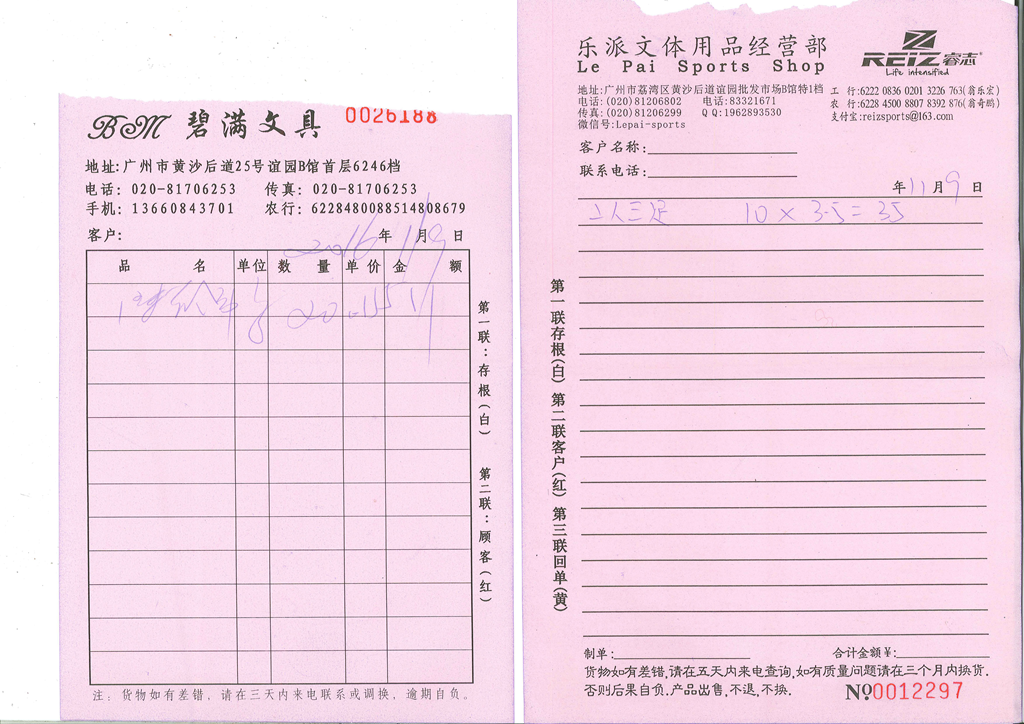 BM 碧满文具 0026188
地址:广州市黄沙后道25号谊园B馆首层6246档
电话: 020-81706253 传真: 020-81706253
手机: 13660843701 农行: 6228480088514808679
客户: 2016年11月9日
品 名 单位 数 量 单价 金 额
20
第一联:存根(白) 第二联:顾客(红)
注: 货物如有差错, 请在三天内来电联系或调换, 逾期自负.
乐派文体用品经营部
Le Pai Sports Shop
REIZ睿志
Life intensified
地址:广州市荔湾区黄沙后道谊园批发市场B馆特1档
电话:(020)81206802 电话:83321671
传真:(020)81206299 QQ:1962893530
微信号:Lepai-sports
工 行:6222 0836 0201 3226 763(翁乐宏)
农 行:6228 4500 8807 8392 876(翁奇鹏)
支付宝:reizsports@163.com
客户名称:
联系电话:
年11月9日
二人三足 10×3.5=35
第一联存根(白) 第二联客户(红) 第三联回单(黄)
制单: 合计金额¥:
货物如有差错,请在五天内来电查询,如有质量问题请在三个月内换货.
否则后果自负.产品出售,不退,不换.
Nº0012297